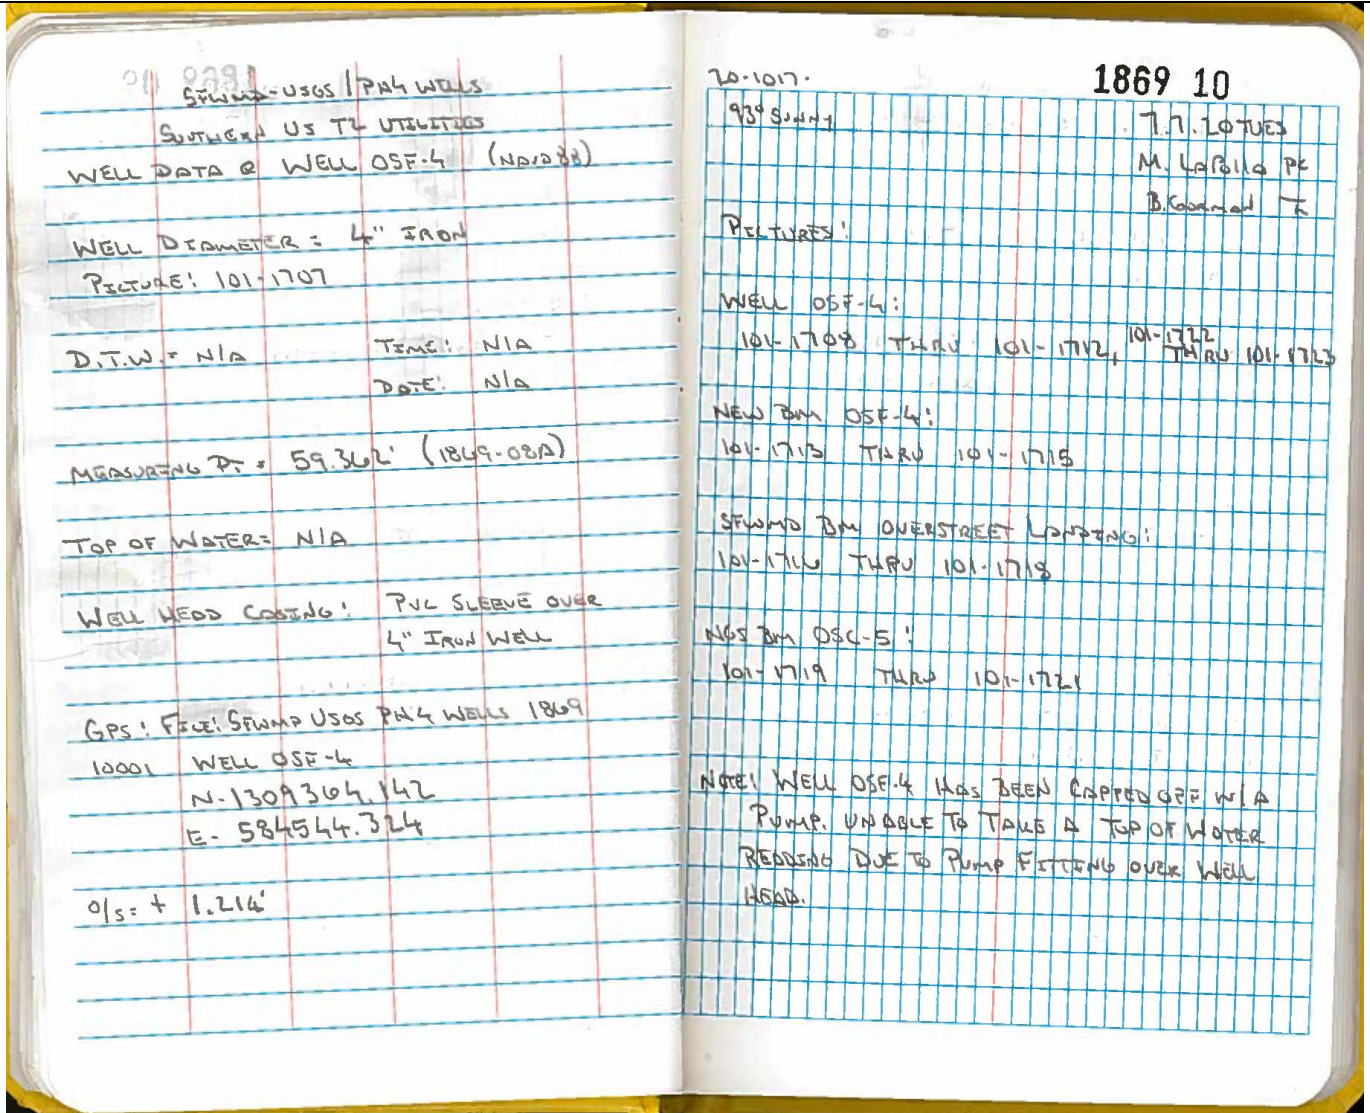 SFWMD-USGS / PH4 WELLS
SOUTHERN US TZ UTILITIES
WELL DATA @ WELL OSF-4 (NAVD88)
WELL DIAMETER = 4" IRON
PICTURE: 101-1707
D.T.W. = N/A TIME: N/A
DATE: N/A
MEASURING PT = 59.362' (1869-08A)
TOP OF WATER = N/A
WELL HEAD CASING: PVC SLEEVE OVER
4" IRON WELL
GPS: FILE: SFWMD USGS PH4 WELLS 1869
10001 WELL OSF-4
N-1309364.142
E-584544.324
O/S = + 1.214'
20-1017.
1869 10
93° SUNNY
7.7.20 TUES
M. LaPolla PC
B. Gorman
PICTURES:
WELL OSF-4:
101-1708 THRU 101-1712, 101-1722
THRU 101-1723
NEW BM OSF-4:
101-1713 THRU 101-1715
SFWMD BM OVERSTREET LANDING:
101-1716 THRU 101-1718
NGS BM OSC-5:
101-1719 THRU 101-1721
NOTE: WELL OSF-4 HAS BEEN CAPPED OFF W/A
PUMP. UNABLE TO TAKE A TOP OF WATER
READING DUE TO PUMP FITTING OVER WELL
HEAD.